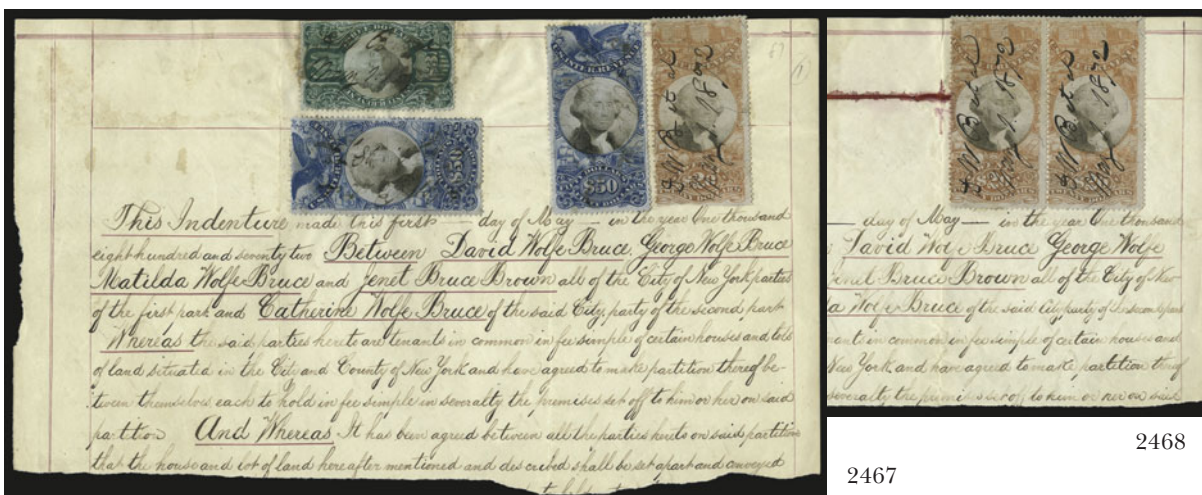 U.S. INTER. REVENUE
$50
This Indenture made this first day of May in the year One thousand
eight hundred and seventy two Between David Wolfe Bruce, George Wolfe Bruce
Matilda Wolfe Bruce and Jenet Bruce Brown all of the City of New York parties
of the first park and Catherine Wolfe Bruce of the said City, party of the second part
Whereas the said parties hereto are tenants in common in fee simple of certain houses and lots
of land situated in the City and County of New York and have agreed to make partition thereof be-
tween themselves each to hold in fee simple in severalty the premises set off to him or her on said
partition And Whereas It has been agreed between all the parties hereto on said partition
that the house and lot of land hereafter mentioned and described shall be set apart and conveyed
1872
1872
1872
day of May in the year One thousand
David Wolfe Bruce George Wolfe
Jenet Bruce Brown all of the City of New
da Wolfe Bruce of the said City party of the second part
nants in common in fee simple of certain houses and
New York and have agreed to make partition thereof
severalty the premises set off to him or her on said
2468
2467